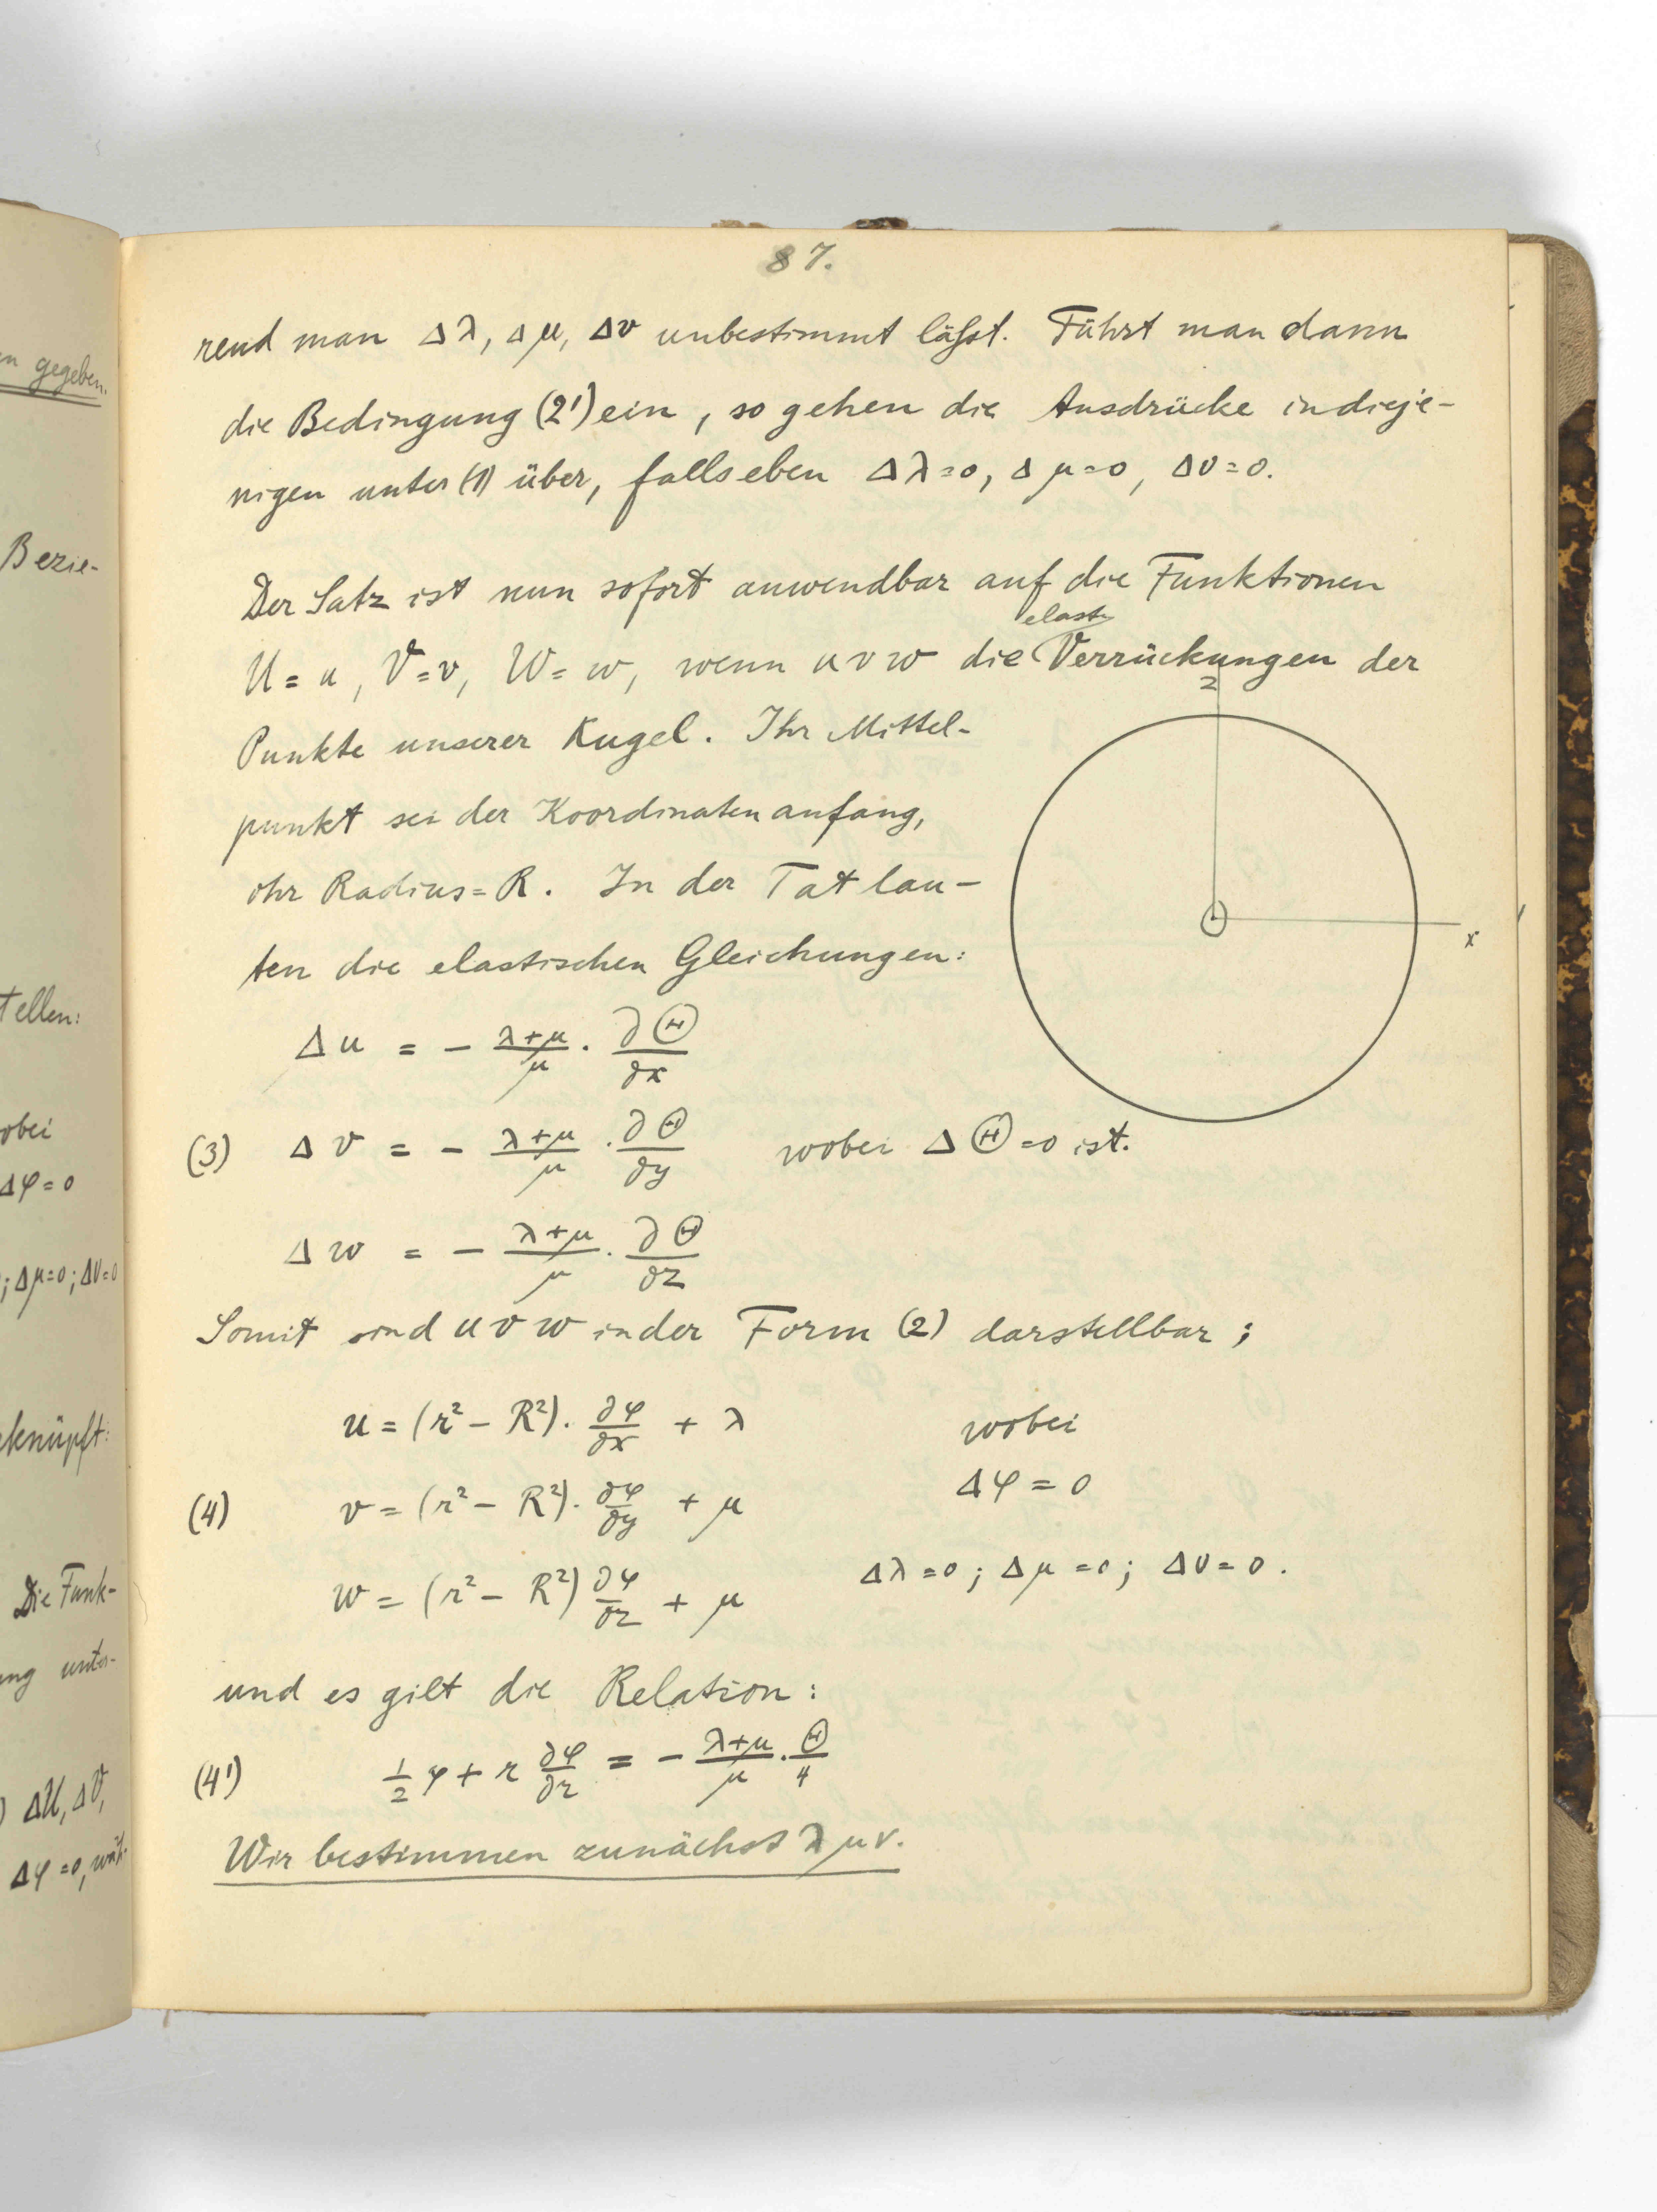 n gegeben.
Bezie-
tellen:
obei
Δφ=0
; Δμ=0; Δν=0
knüpft:
Die Funk-
ung unter-
) ΔU, ΔV,
Δφ=0, wäh-
87.
rend man Δλ, Δμ, Δν unbestimmt läßt. Führt man dann
die Bedingung (2') ein, so gehen die Ausdrücke in dieje-
nigen unter (1) über, falls eben Δλ=0, Δμ=0, Δν=0.
Der Satz ist nun sofort anwendbar auf die Funktionen
elast.
U = u, V = v, W = w, wenn u v w die Verrückungen der
Punkte unserer Kugel. Ihr Mittel-
punkt sei der Koordinatenanfang,
ihr Radius = R. In der Tat lau-
ten die elastischen Gleichungen:
z
x
Δu = - (λ+μ)/μ · ∂Θ/∂x
(3) Δv = - (λ+μ)/μ · ∂Θ/∂y wobei ΔΘ=0 ist.
Δw = - (λ+μ)/μ · ∂Θ/∂z
Somit sind u v w in der Form (2) darstellbar;
u = (r² - R²) · ∂φ/∂x + λ wobei
Δφ = 0
(4) v = (r² - R²) · ∂φ/∂y + μ
Δλ=0; Δμ=0; Δν=0.
w = (r² - R²) ∂φ/∂z + μ
und es gilt die Relation:
(4') 1/2 φ + r ∂φ/∂r = - (λ+μ)/μ · Θ/4
Wir bestimmen zunächst λ μ ν.